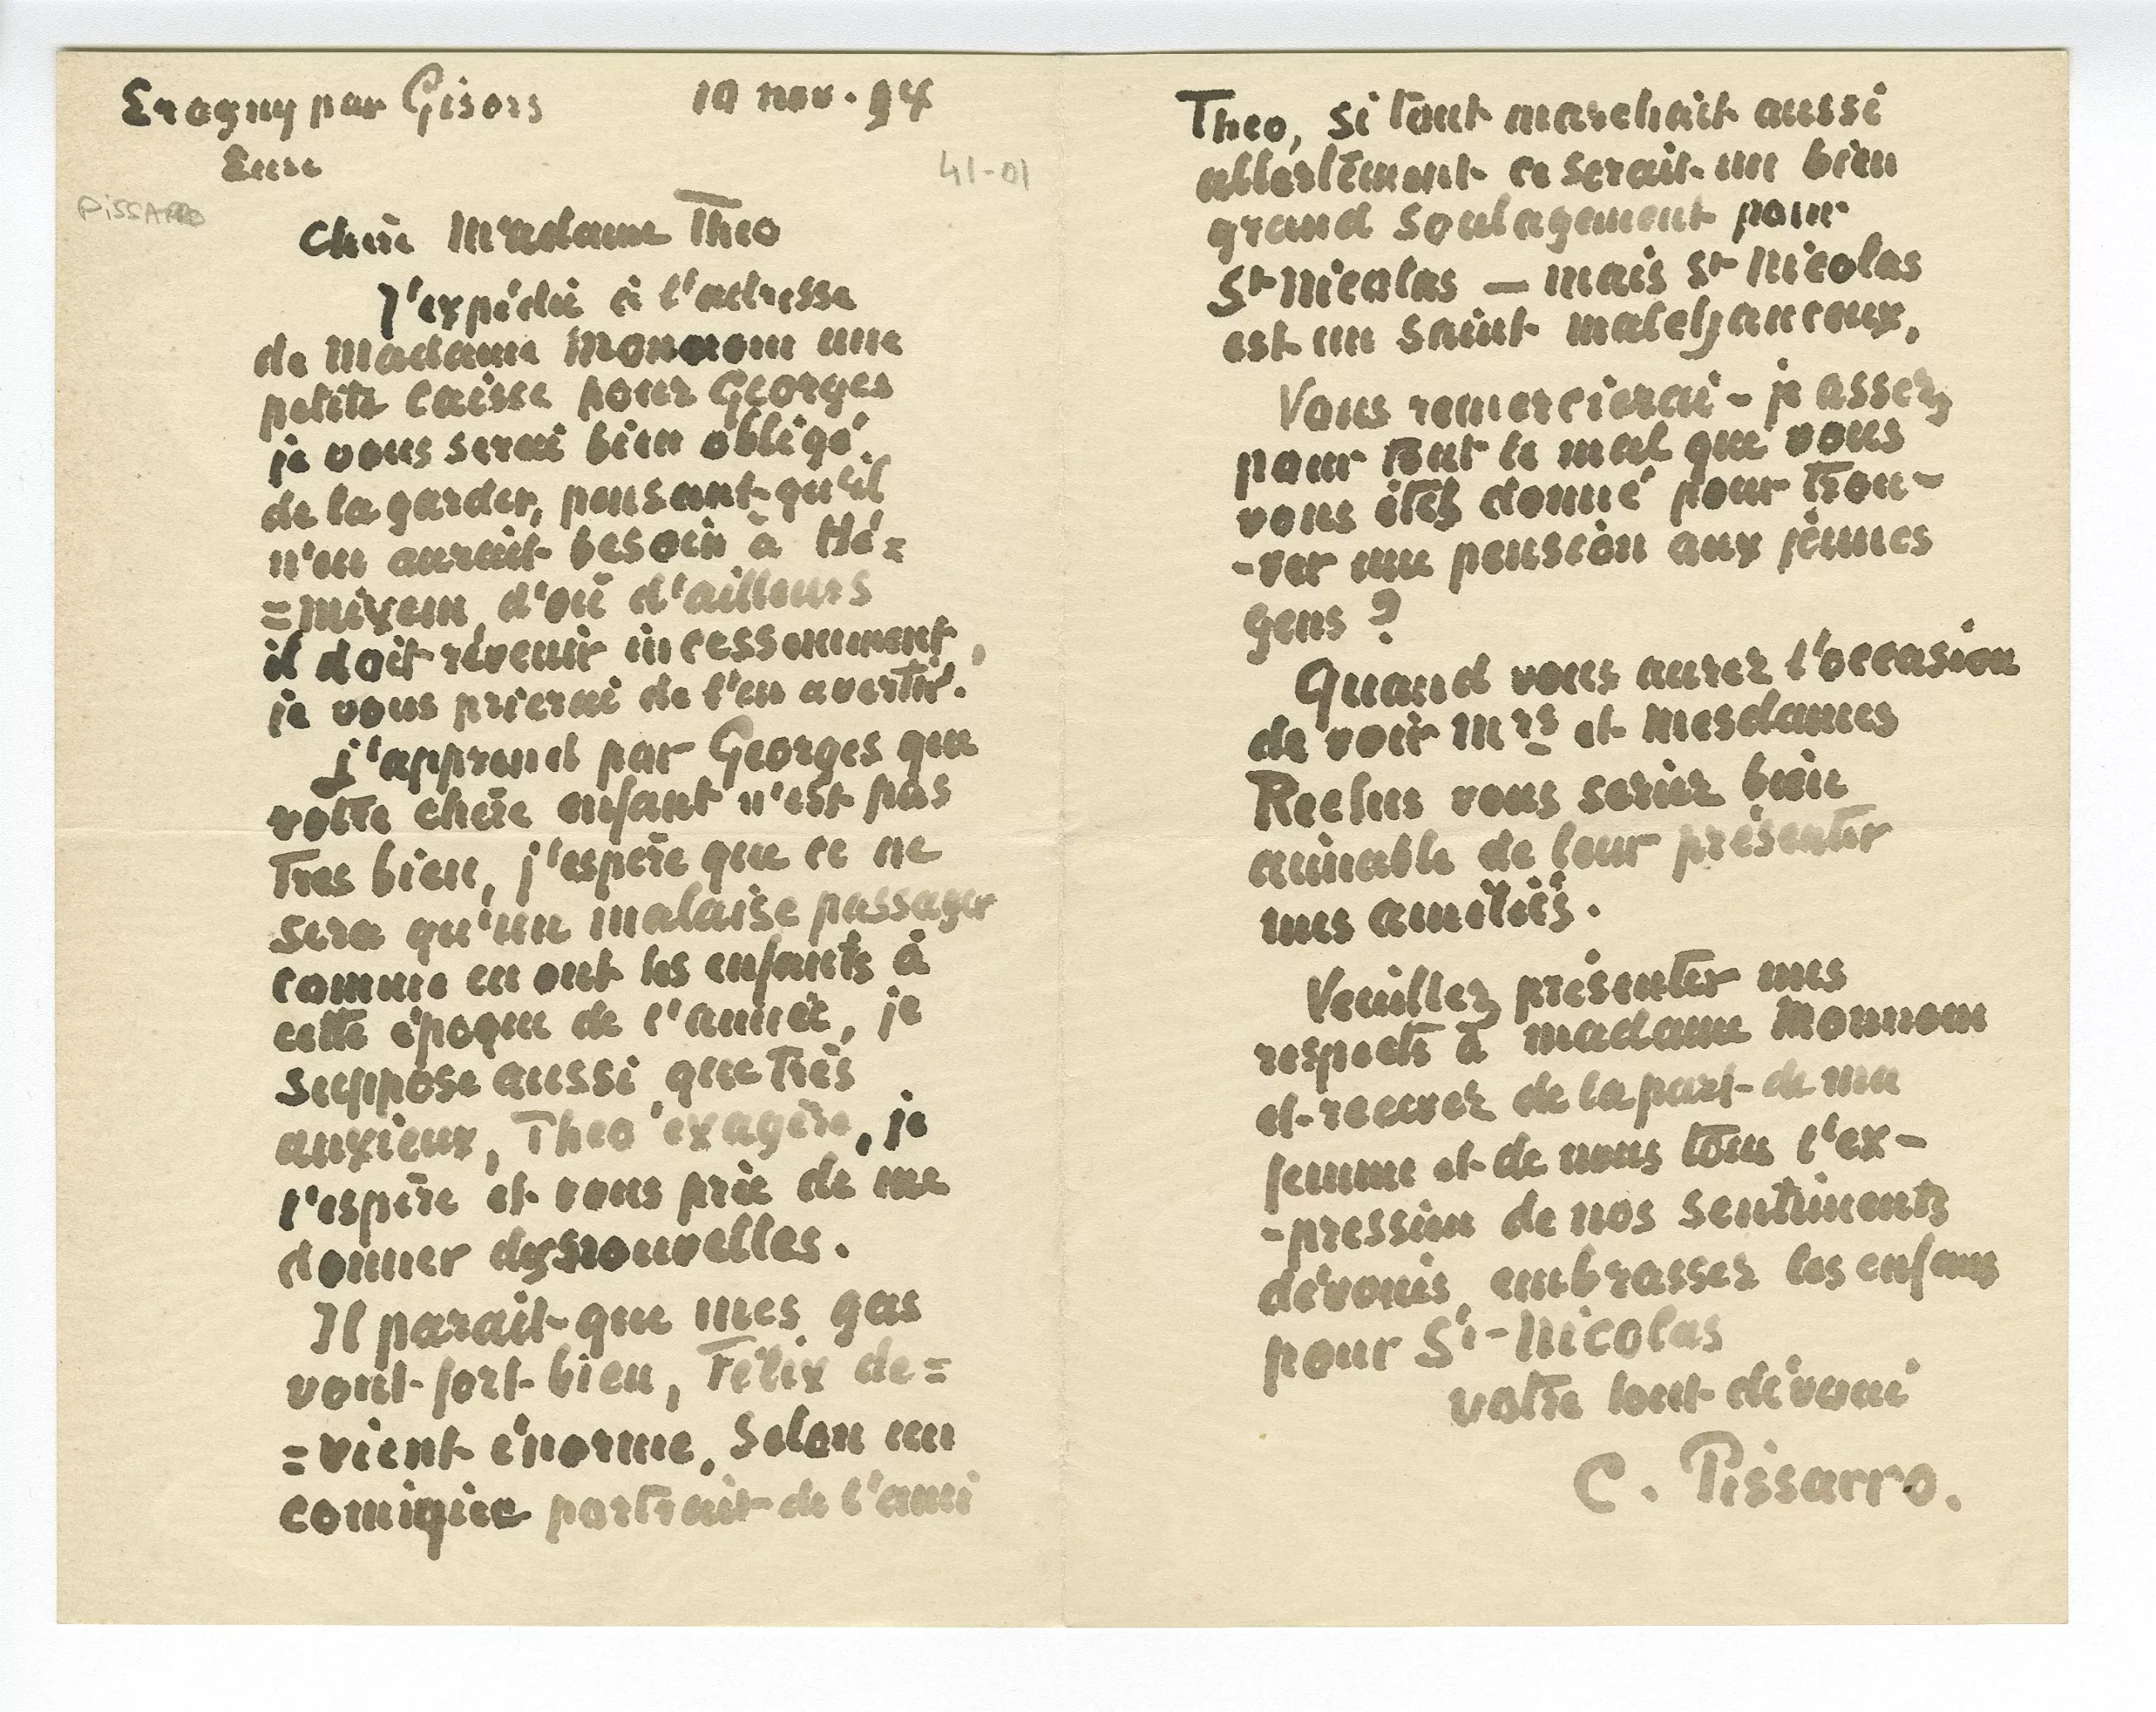 Eragny par Gisors 10 nov. 94
Eure
41-01
PISSARRO
Chère Madame Theo
J'expédie à l'adresse
de Madame Monnom une
petite caisse pour Georges
je vous serai bien obligé
de la garder, pensant qu'il
n'en aurait besoin à Hé=
=mixem d'où d'ailleurs
il doit revenir incessamment,
je vous prierai de l'en avertir.
j'apprend par Georges que
votre chère enfant n'est pas
Très bien, j'espère que ce ne
sera qu'un malaise passager
comme en ont les enfants à
cette époque de l'année, je
suppose aussi que Très
anxieux, Theo exagère, je
l'espère et vous prie de me
donner des nouvelles.
Il parait que mes gas
vont fort bien, Félix de=
=vient énorme, Selon un
comique portrait de l'ami
Theo, si tout marchait aussi
ce serait un bien
grand soulagement pour
St Nicolas — mais St Nicolas
est un saint malchanceux,
Vous remercierai-je assez
pour Tout le mal que vous
vous êtes donné pour trou-
-ver une pension aux jeunes
gens ?
Quand vous aurez l'occasion
de voir Mrs et Mesdames
Reclus vous seriez bien
aimable de leur présenter
mes amitiés.
Veuillez présenter mes
respects à madame Monnom
et recevez de la part de ma
femme et de nous tous l'ex-
-pression de nos sentiments
dévoués, embrassez les enfans
pour St-Nicolas
votre tout dévoué
C. Pissarro.